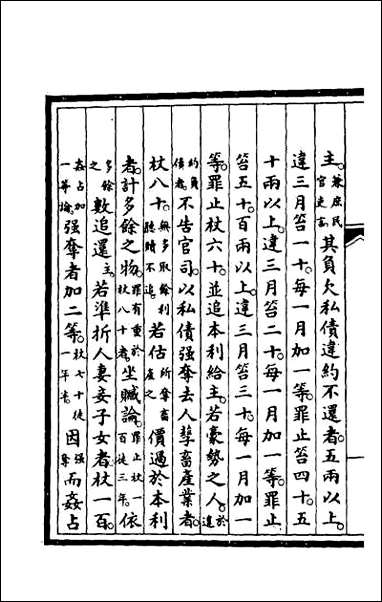 主。兼庶民官吏言。其負欠私債違約不還者。五兩以上。
違三月笞一十。每一月加一等。罪止笞四十。五
十兩以上。違三月笞二十。每一月加一等。罪止
笞五十。百兩以上。違三月笞三十。每一月加一
等。罪止杖六十。並追本利給主。若豪勢之人。於違
約負債者。不告官司。以私債强奪去人孳畜產業者。
杖八十。無多取餘利聽贖不追。若估所奪畜產之價過於本利
者。計多餘之物。罪有重於杖八十者。坐贓論。罪止杖一百徒三年。依
多餘之數追還主。若準折人妻妾子女者。杖一百。
姦占加一等論。强奪者加二等。杖七十徒一年半。因强奪而姦占